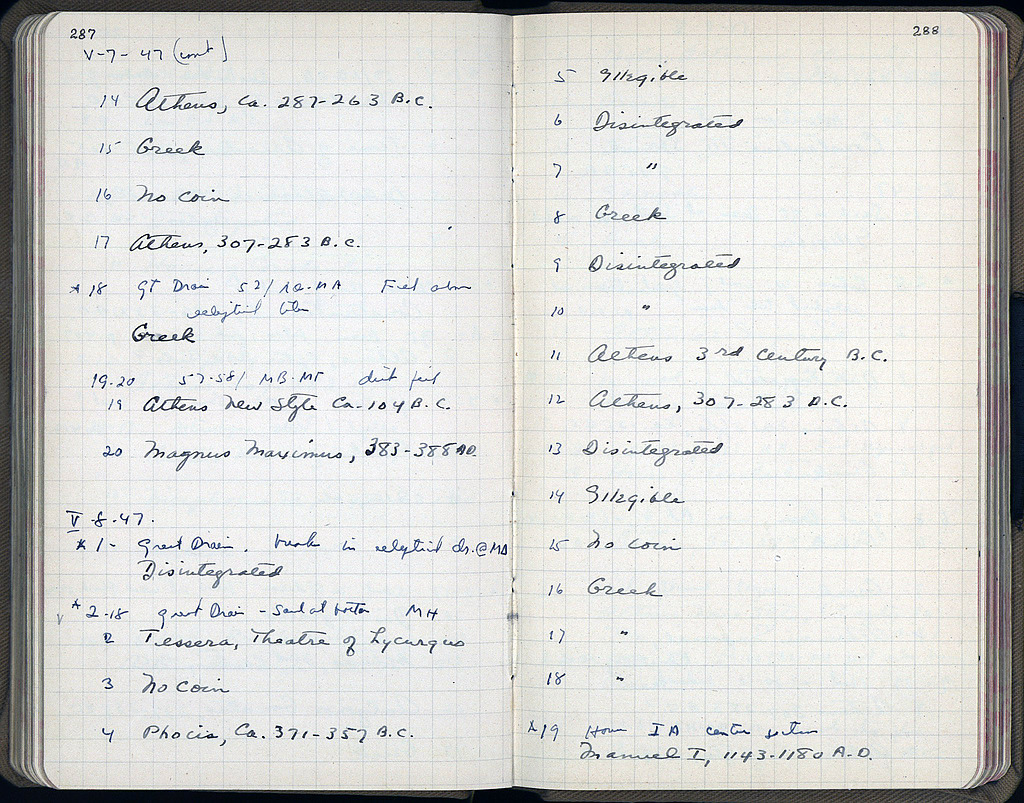 287
V-7-47 (cont)
14 Athens, Ca. 287-263 B.C.
15 Greek
16 No coin
17 Athens, 307-283 B.C.
* 18 Gt Drain 52/
Greek
19-20 57-58/
19 Athens New Style Ca. 104 B.C.
20 Magnus Maximus, 383-388 A.D.
V-8-47.
* 1- Great Drain. break in
Disintegrated
* 2-18 Great Drain - Sand at bottom MH
2 Tessera, Theatre of Lycurgus
3 No coin
4 Phocis, Ca. 371-357 B.C.
288
5 Illegible
6 Disintegrated
7 "
8 Greek
9 Disintegrated
10 "
11 Athens 3rd Century B.C.
12 Athens, 307-283 B.C.
13 Disintegrated
14 Illegible
15 No coin
16 Greek
17 "
18 "
* 19 House IA center
Manuel I, 1143-1180 A.D.